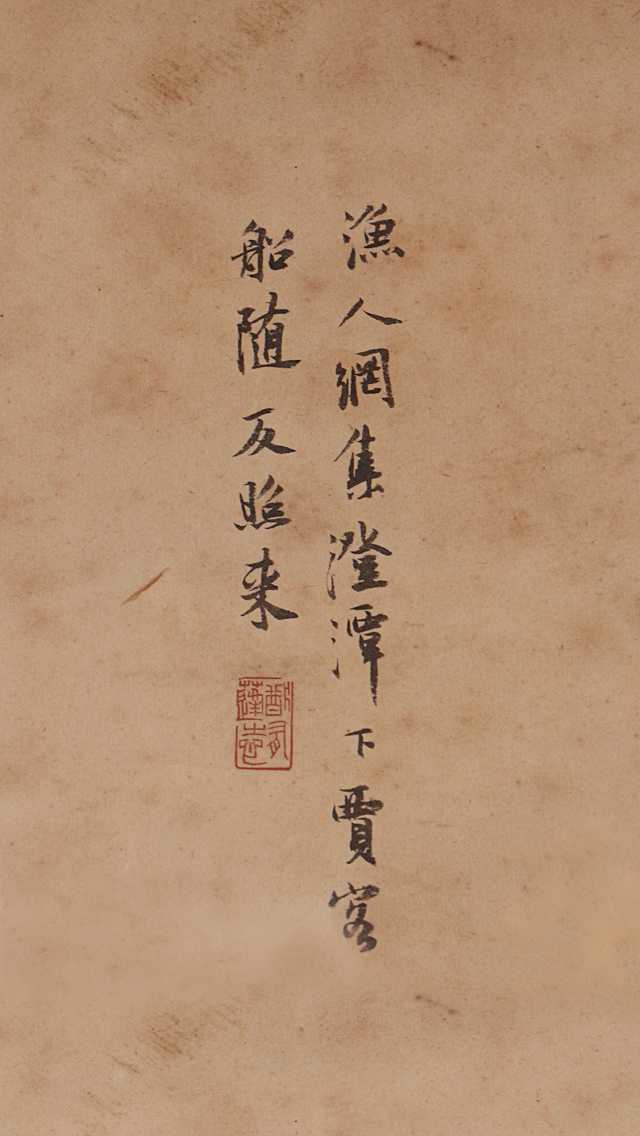 漁人網集澄潭下賈客
船随反照来